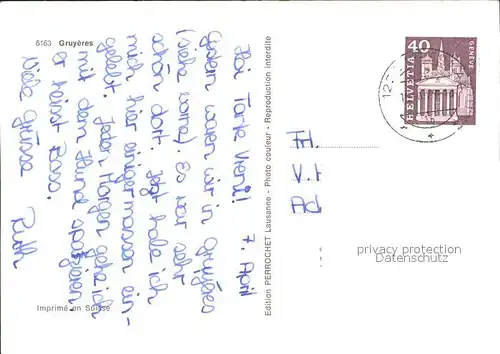 6163 Gruyères
Hoi Tante Vreni! 7. April
Gestern waren wir in Gruyères
(siehe vorne). Es war sehr
schön dort. Jetzt habe ich
mich hier einigermassen ein-
gelebt. Jeden Morgen gehe ich
mit dem Hund spazieren.
er heisst Boss.
Viele Grüsse
Ruth
Imprimé en Suisse
Edition PERROCHET Lausanne - Photo couleur - Reproduction interdite
40
HELVETIA
GENÈVE
privacy protection
Datenschutz